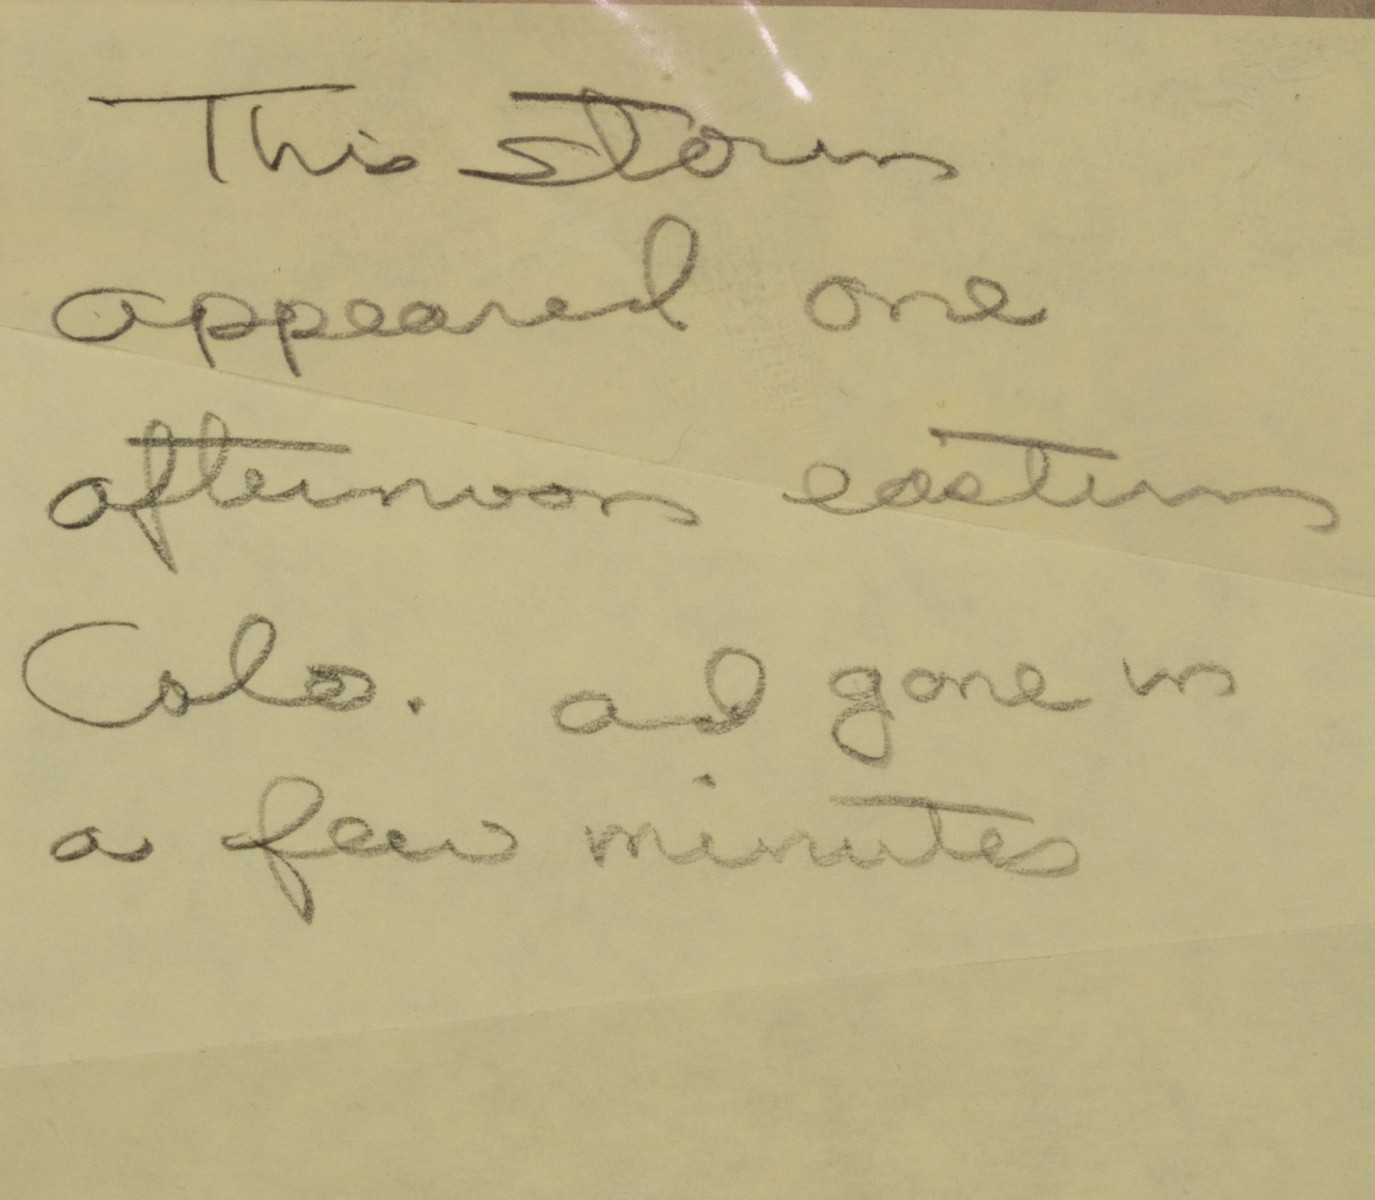 This storm
appeared one
afternoon eastern
Colo. and gone in
a few minutes